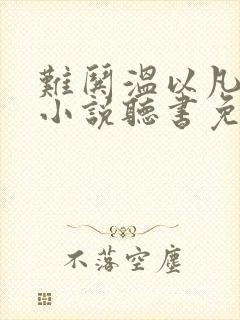 難鬨溫以凡
小說聽書免
不落空塵